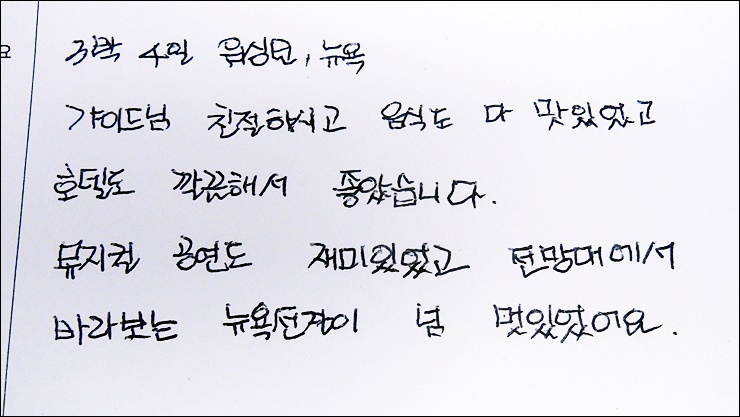 3박 4일 워싱턴, 뉴욕
가이드님 친절하시고 음식도 다 맛있었고
호텔도 깍끈해서 좋았습니다.
뮤지컬 공연도 재미있었고 전망대에서
바라보는 뉴욕전경이 넘 멋있었어요.